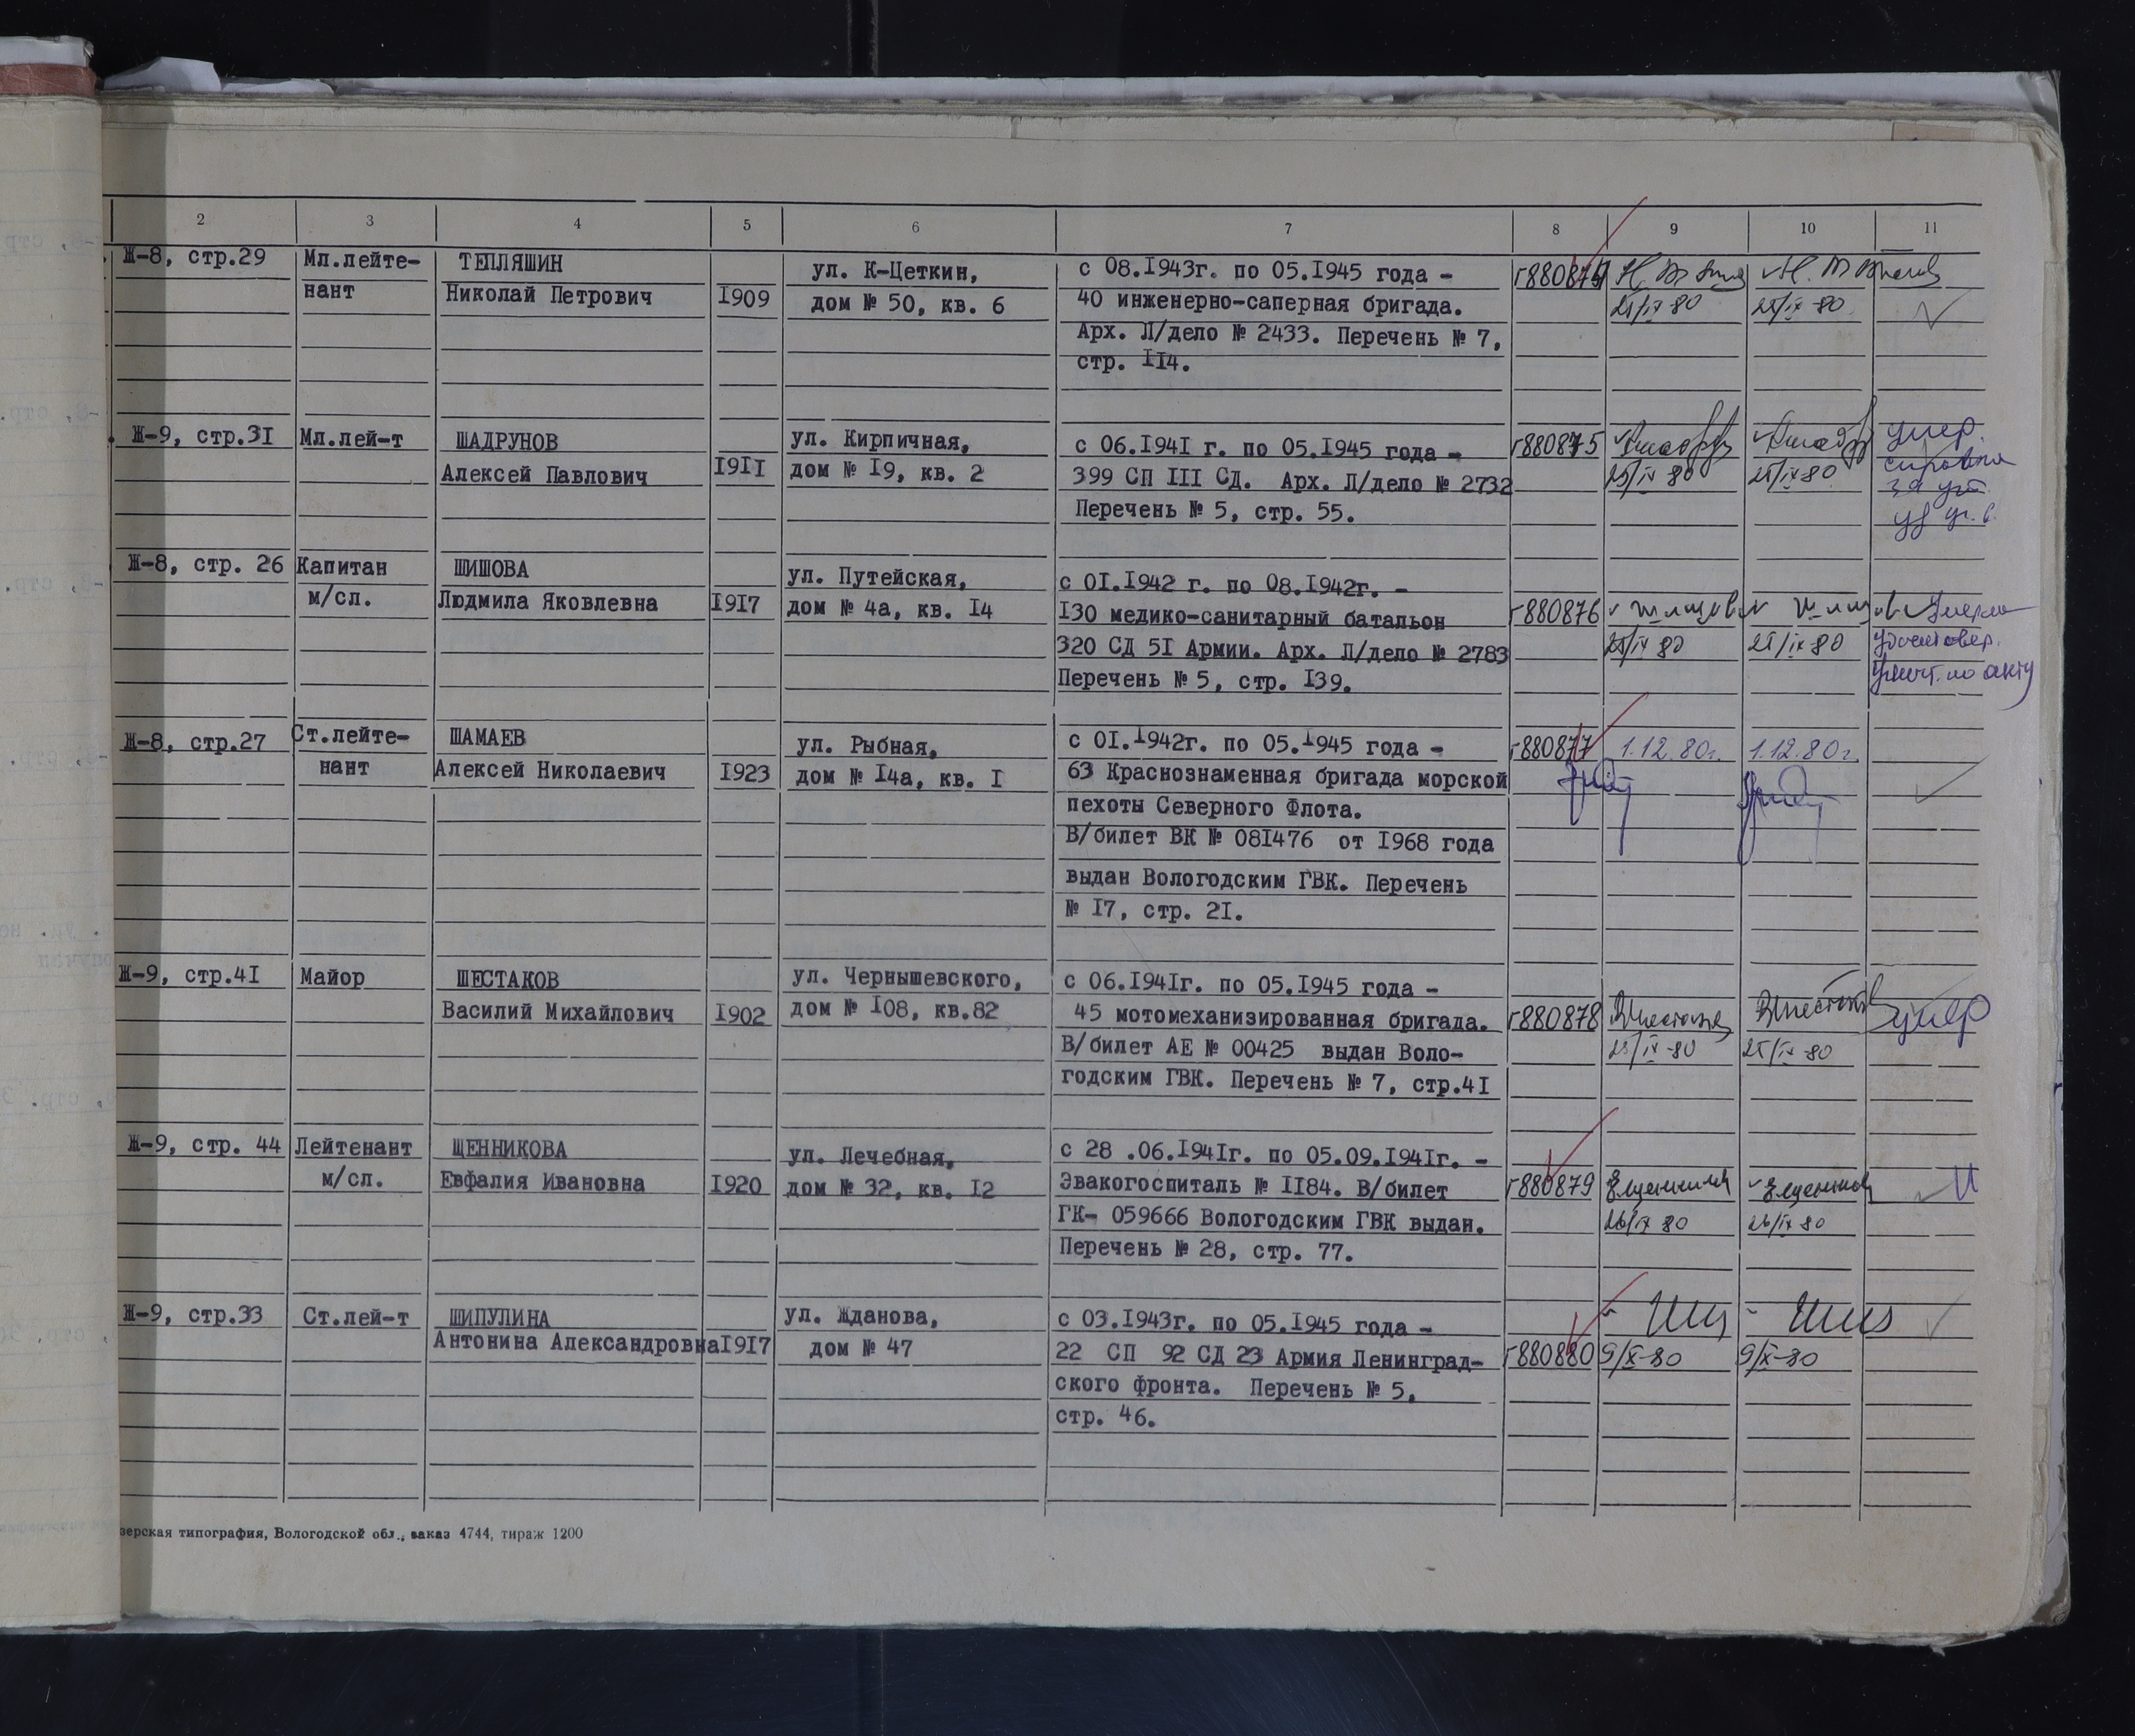 2 3 4 5 6 7 8 9 10 11
Ж-8, стр.29 Мл.лейте- ТЕПЛЯШИН ул. К-Цеткин, с 08.I943г. по 05.I945 года -
нант Николай Петрович I909 дом № 50, кв. 6 40 инженерно-саперная бригада.
25/IX 80 25/IX-80
Арх. Л/дело № 2433. Перечень № 7,
стр. II4.
Ж-9, стр.3I Мл.лей-т ШАДРУНОВ ул. Кирпичная, с 06.I94I г. по 05.I945 года - г880875 умер.
Алексей Павлович I9II дом № I9, кв. 2 399 СП III СД. Арх. Л/дело № 2732 25/IX 80 25/IX-80
Перечень № 5, стр. 55.
Ж-8, стр. 26 Капитан ШИШОВА ул. Путейская, с 0I.I942 г. по 08.I942г. -
м/сл. Людмила Яковлевна I9I7 дом № 4а, кв. I4 I30 медико-санитарный батальон г880876 Умерла
320 СД 5I Армии. Арх. Л/дело № 2783 25/IX 80 25/IX 80 удостовер.
Перечень № 5, стр. I39. уничт. по акту
Ж-8, стр.27 Ст.лейте- ШАМАЕВ ул. Рыбная, с 0I.I942г. по 05.I945 года - г880877 1.12.80г. 1.12.80г.
нант Алексей Николаевич I923 дом № I4а, кв. I 63 Краснознаменная бригада морской
пехоты Северного Флота.
В/билет ВК № 08I476 от I968 года
выдан Вологодским ГВК. Перечень
№ I7, стр. 2I.
Ж-9, стр.4I Майор ШЕСТАКОВ ул. Чернышевского, с 06.I94Iг. по 05.I945 года -
Василий Михайлович I902 дом № I08, кв.82 45 мотомеханизированная бригада. г880878 ВШестаков ВШестаков умер
В/билет АЕ № 00425 выдан Воло- 25/IX-80 25/IX-80
годским ГВК. Перечень № 7, стр.4I
Ж-9, стр. 44 Лейтенант ЩЕННИКОВА ул. Лечебная, с 28 .06.I94Iг. по 05.09.I94Iг. -
м/сл. Евфалия Ивановна I920 дом № 32, кв. I2 Эвакогоспиталь № II84. В/билет г880879
ГК- 059666 Вологодским ГВК выдан. 26/IX 80 26/IX 80
Перечень № 28, стр. 77.
Ж-9, стр.33 Ст.лей-т ШИПУЛИНА ул. Жданова, с 03.I943г. по 05.I945 года -
Антонина Александровна I9I7 дом № 47 22 СП 92 СД 23 Армия Ленинград- г880880 9/X-80 9/X-80
ского фронта. Перечень № 5,
стр. 46.
зерская типография, Вологодской обл., заказ 4744, тираж 1200